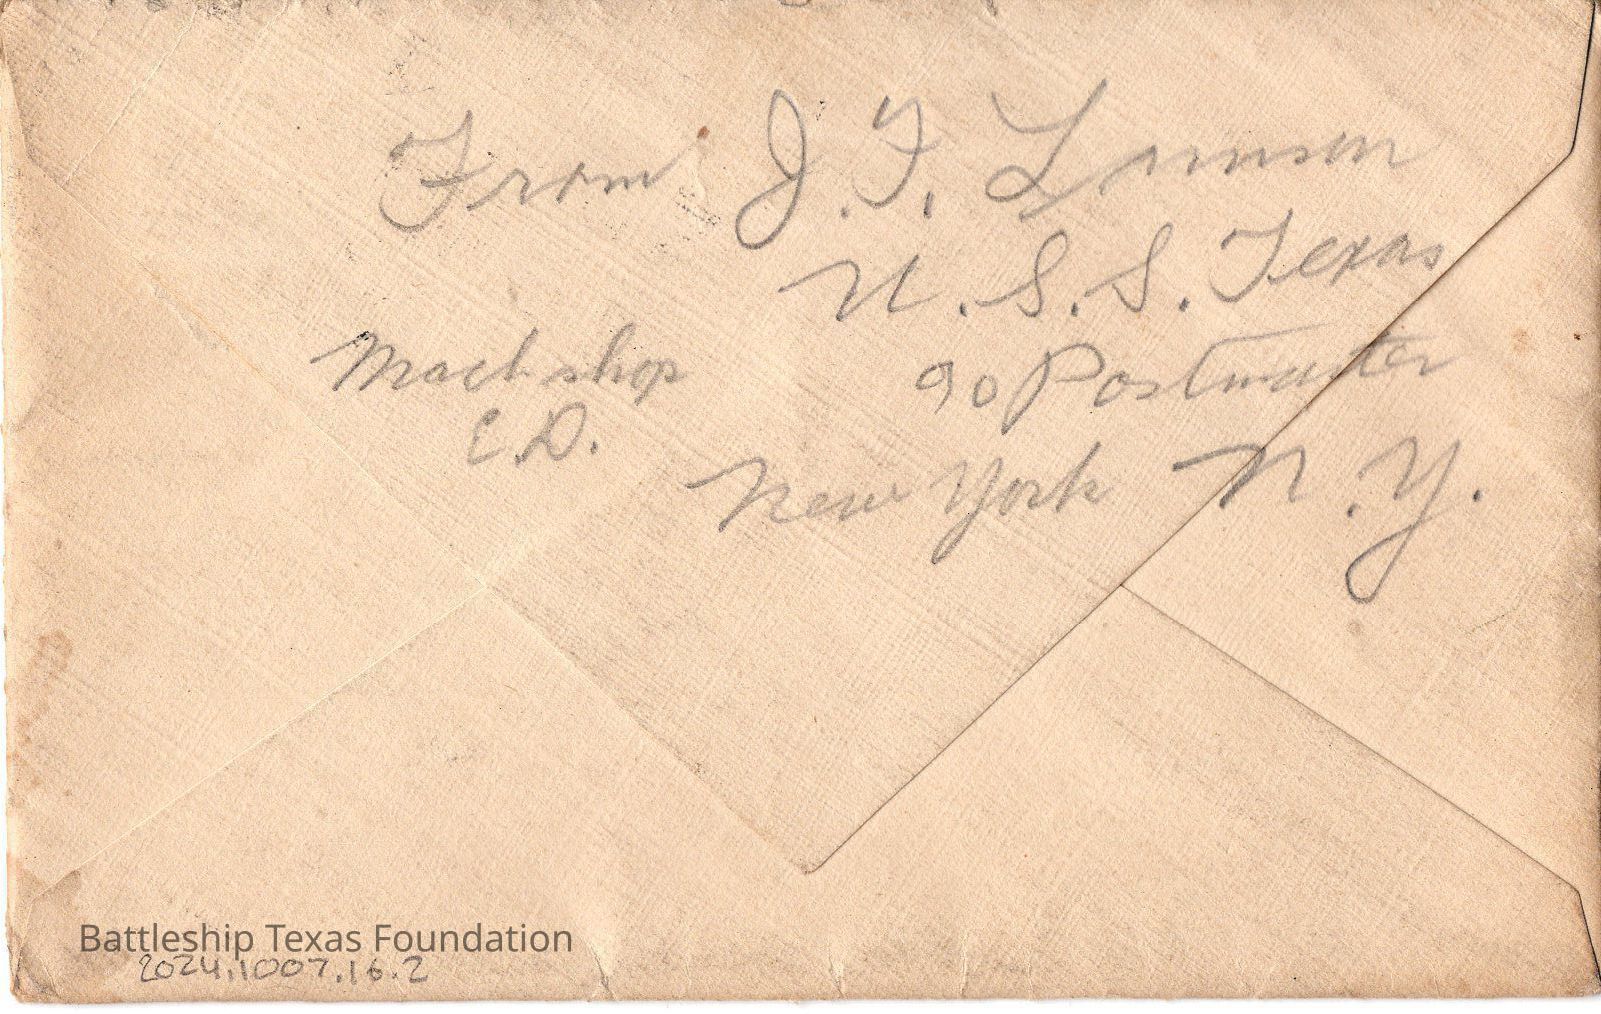 From J. T.
U.S.S. Texas
Mach shop
℅ Postmaster
E.D.
New York N.Y.
Battleship Texas Foundation
2024.1007.16.2